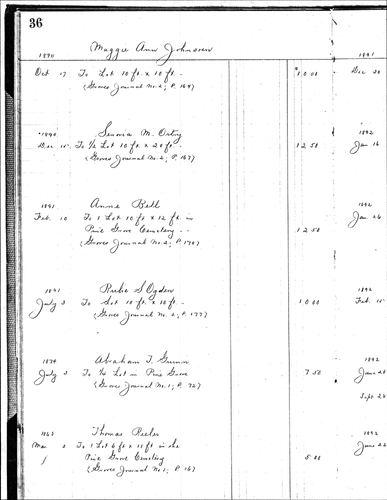 36
Maggie Ann Johnson
1890 1891
Oct 17 To Lot 10 ft. x 10 ft. 10 00 Dec 30
(Graves Journal No. 2; P. 164)
1890 M. 1892
Dec 15 To ½ Lot 10 ft. x 20 ft. 12 50 Jan 16
(Graves Journal No. 2; P. 167)
1891 Anne Bell 1892
Feb. 10 To 1 Lot 10 ft x 12 ft. in Jan 26
Pine Grove Cemetery 12 50
(Graves Journal No. 2; P. 170)
1891 Rube S Ogden 1892
July 3 To Lot 10 ft x 10 ft. 10 00 Feb. 15
(Graves Journal No. 2, P. 177)
1874 Abraham T. 1892
July 3 To ½ Lot in Pine Grove 7 50 June 28
(Graves Journal No. 1; P. 72) Sept. 26
1863 Thomas 1892
Mar To 1 Lot 6 ft x 11 ft in the June 22
Pine Grove Cemetery 5 00
(Graves Journal No. 1; P. 16)